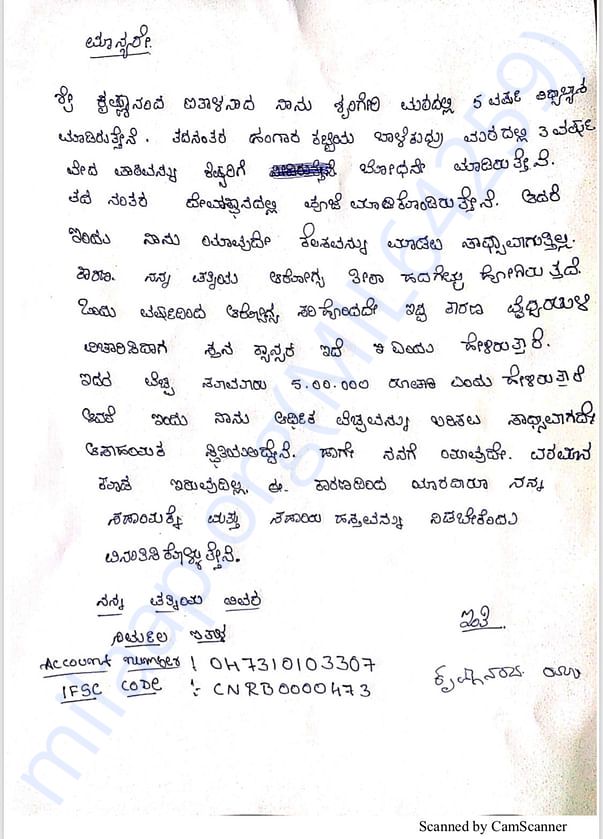 ಮಾನ್ಯರೇ.
ಶ್ರೀ ಕೃಷ್ಣಾನಂದ ಐತಾಳನಾದ ನಾನು ಶೃಂಗೇರಿ ಮಠದಲ್ಲಿ 5 ವರ್ಷ ವಿದ್ಯಾಭ್ಯಾಸ
ಮಾಡಿರುತ್ತೇನೆ. ತದನಂತರ ಹಂಗಾರ ಕಟ್ಟೆಯ ಬಾಳೆಕುದ್ರು ಮಠದಲ್ಲಿ 3 ವರ್ಷ
ವೇದ ಪಾಠವನ್ನು ಶಿಷ್ಯರಿಗೆ ಬೋಧನೆ ಮಾಡಿರುತ್ತೇನೆ.
ತದ ನಂತರ ದೇವಸ್ಥಾನದಲ್ಲಿ ಪೂಜೆ ಮಾಡಿಕೊಂಡಿರುತ್ತೇನೆ. ಆದರೆ
ಇಂದು ನಾನು ಯಾವುದೇ ಕೆಲಸವನ್ನು ಮಾಡಲು ಸಾಧ್ಯವಾಗುತ್ತಿಲ್ಲ.
ಕಾರಣ. ನನ್ನ ಪತ್ನಿಯ ಆರೋಗ್ಯ ತೀರಾ ಹದಗೆಟ್ಟು ಹೋಗಿರುತ್ತದೆ.
ಒಂದು ವರ್ಷದಿಂದ ಆರೋಗ್ಯ ಸರಿಹೊಂದದೇ ಇದ್ದ ಕಾರಣ ವೈದ್ಯರುಳಿ
ವಿಚಾರಿಸಿದಾಗ ಸ್ತನ ಕ್ಯಾನ್ಸರ್ ಇದೆ ಎಂದು ಹೇಳಿರುತ್ತಾರೆ.
ಇದರ ವೆಚ್ಚ ಸುಮಾರು 5.00.000 ರೂಪಾಯಿ ಎಂದು ಹೇಳಿರುತ್ತಾರೆ
ಆದರೆ ಇಂದು ನಾನು ಆರ್ಥಿಕ ವೆಚ್ಚವನ್ನು ಭರಿಸಲು ಸಾಧ್ಯವಾಗದೇ
ಅಸಹಾಯಕ ಸ್ಥಿತಿಯಲ್ಲಿದ್ದೇನೆ. ಹಾಗೇ ನನಗೆ ಯಾವುದೇ. ವರಮಾನ
ಕೂಡಾ ಇರುವುದಿಲ್ಲ, ಈ. ಕಾರಣದಿಂದ ಯಾರಾದಾರೂ ನನ್ನ
ಸಹಾಯಕ್ಕೆ ಮತ್ತು ಸಹಾಯ ಹಸ್ತವನ್ನು ನಿಡಬೇಕೆಂದು
ವಿನಂತಿಸಿಕೊಳ್ಳುತ್ತೇನೆ.
ನನ್ನ ಪತ್ನಿಯ ವಿವರ
ನಿರ್ಮಲ ಐತಾಳ
ಇತಿ
Account number : 047310103307
IFSC CODE :- CNRB0000473
ಕೃಷ್ಣಾನಂದ
milaap.org(MIL64259)
Scanned by CamScanner